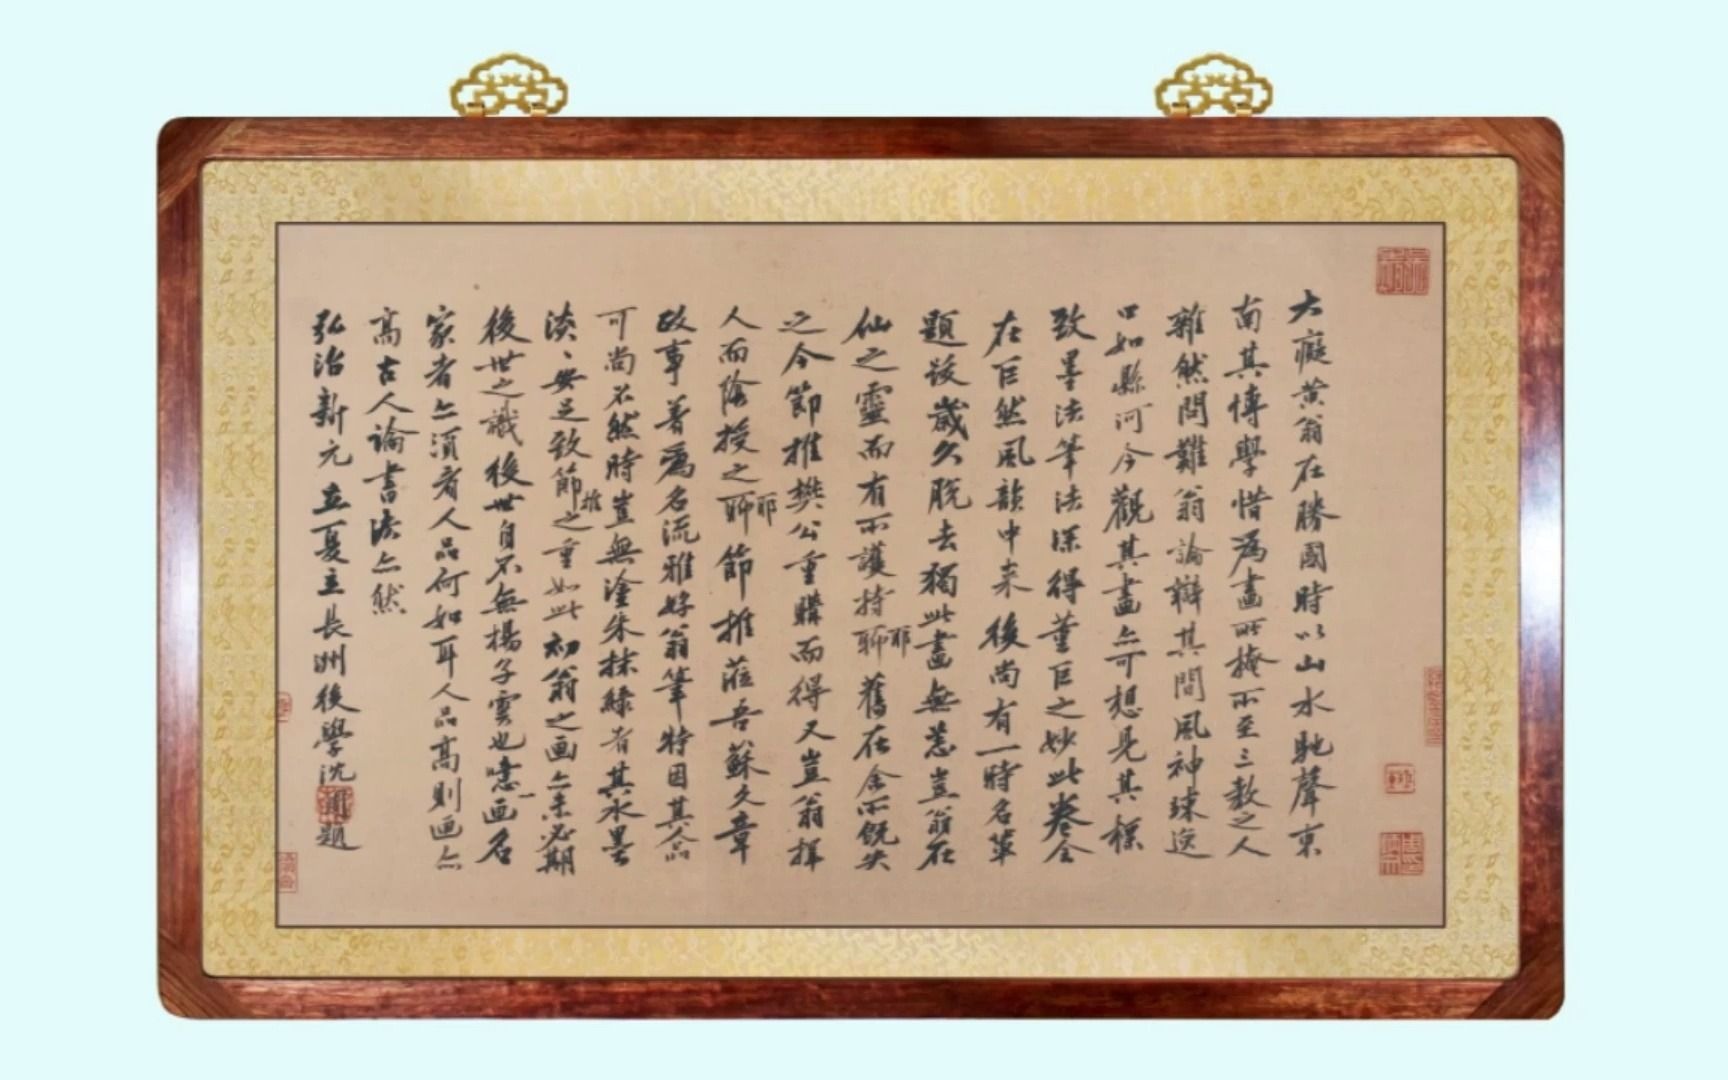 大癡黃翁在勝國時以山水馳聲東
南其博學惜為畫所掩所至三教之人
雜然問難翁論辯其間風神竦逸
口如懸河今觀其畫亦可想見其標
致墨法筆法深得董巨之妙此卷全
在巨然風韻中来後尚有一時名輩
題跋歲久脫去獨此畫無恙豈翁在
仙之靈而有所護持聊耶舊在余所既失
之今節推樊公重購而得又豈翁擇
人而陰授之聊耶節推蒞吾蘇文章
政事著為名流雅好翁筆特因其人品
可尚不然時豈無塗朱抹綠者其水墨
淡、安足致節推之重如此初翁之画亦未必期
後世之識後世自不無揚子雲也噫以画名
家者亦須看人品何如耳人品高則画亦
高古人論書法亦然
弘治新元立夏立長洲後學沈周題